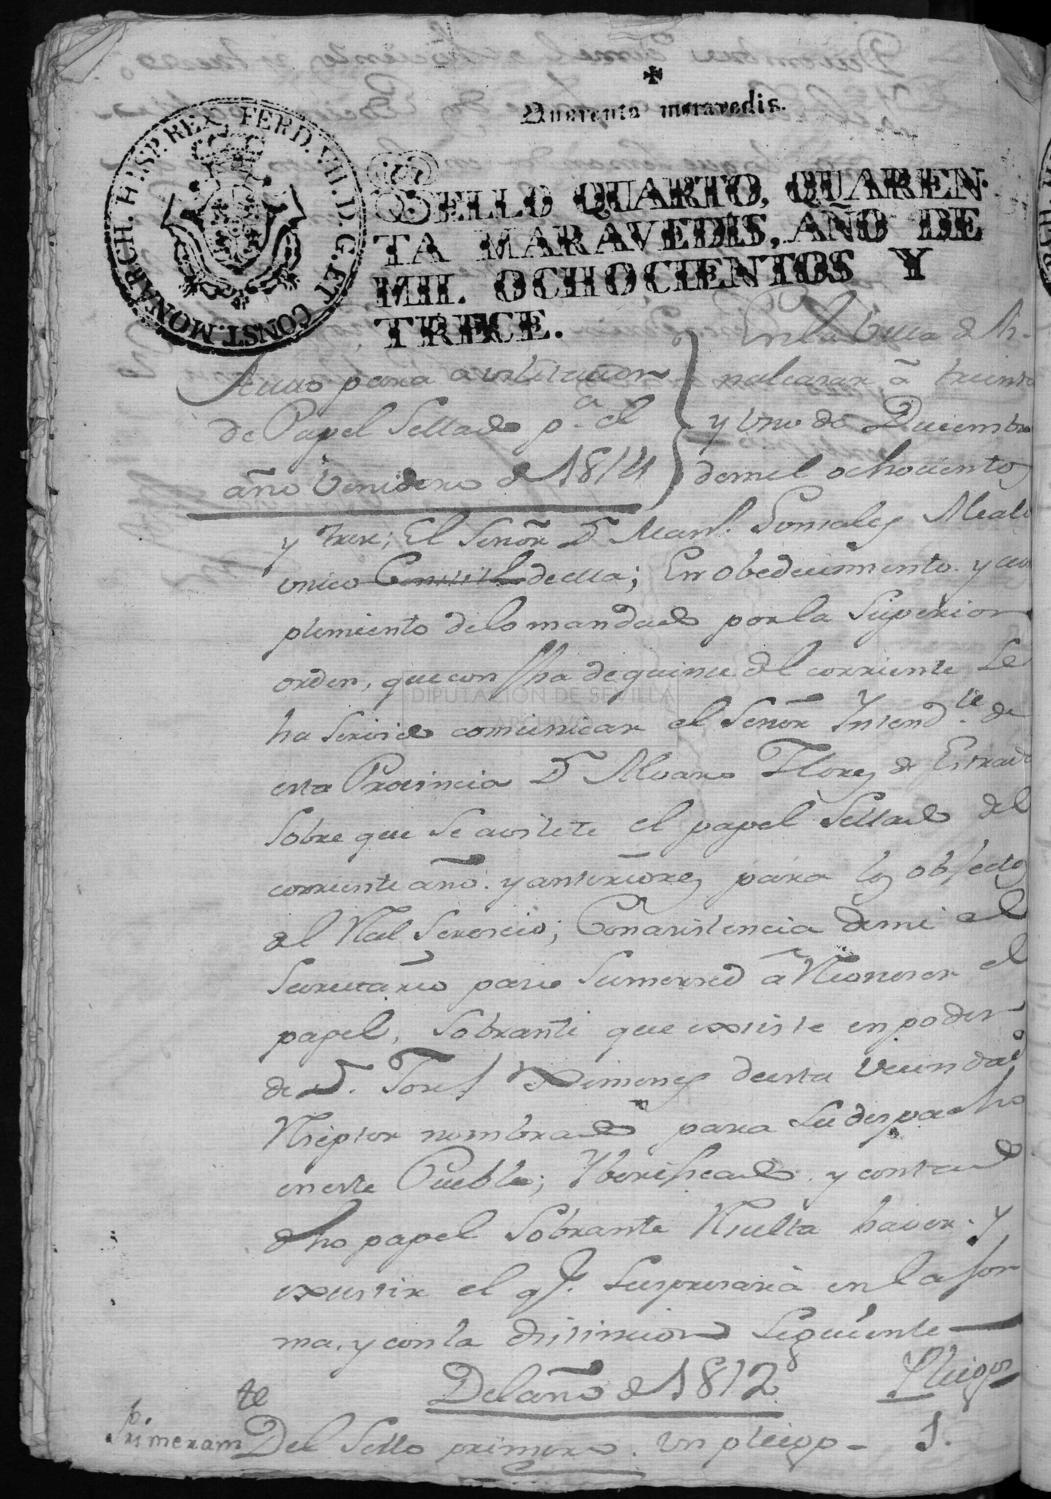 Quarenta maravedis.
HISP. REX. FERD. VII. D. G. ET CONST. MONARCH.
SELLO QUARTO, QUAREN-
TA MARAVEDIS, AÑO DE
MIL OCHOCIENTOS Y
TRECE.
Auto para avilitacion
de Papel Sellado p.a el
año Venidero de 1814
En la Villa de A-
nalcazar, â treinta
y Uno de Diciembre
demil ochocientos
y trece; El Señor Dn. Man.l Gonzales Alcalde
unico Constitl. deella; En obedecimiento y cum
plimiento delo mandado por la Superior
orden, que con fha de quince del corriente Se
ha servido comunicar el Señor Yntend.te de
esta Provincia Dn. Alvaro Florez de Estrada
Sobre que Se avilite el papel Sellado del
corriente año y anteriores para los obsectos
del Nal Servicio; Con asistencia demi el
Secretario paso Sumerced â Reconoser el
papel, Sobrante que existe en poder
de Dn. Josef Ximenes deesta Vecindad
Rseptor nombrado para Su despacho
eneste Pueblo; Y berificado y contado
dho papel Sobrante Rsulta haver y
existir el q.e Seespresará en la for
ma, y con la distincion Seguiente
Del año de 1812 Pliegos
Primeram.te Del Sello primero un pliego - 1.
DIPUTACIÓN DE SEVILLA
ARCHIVO